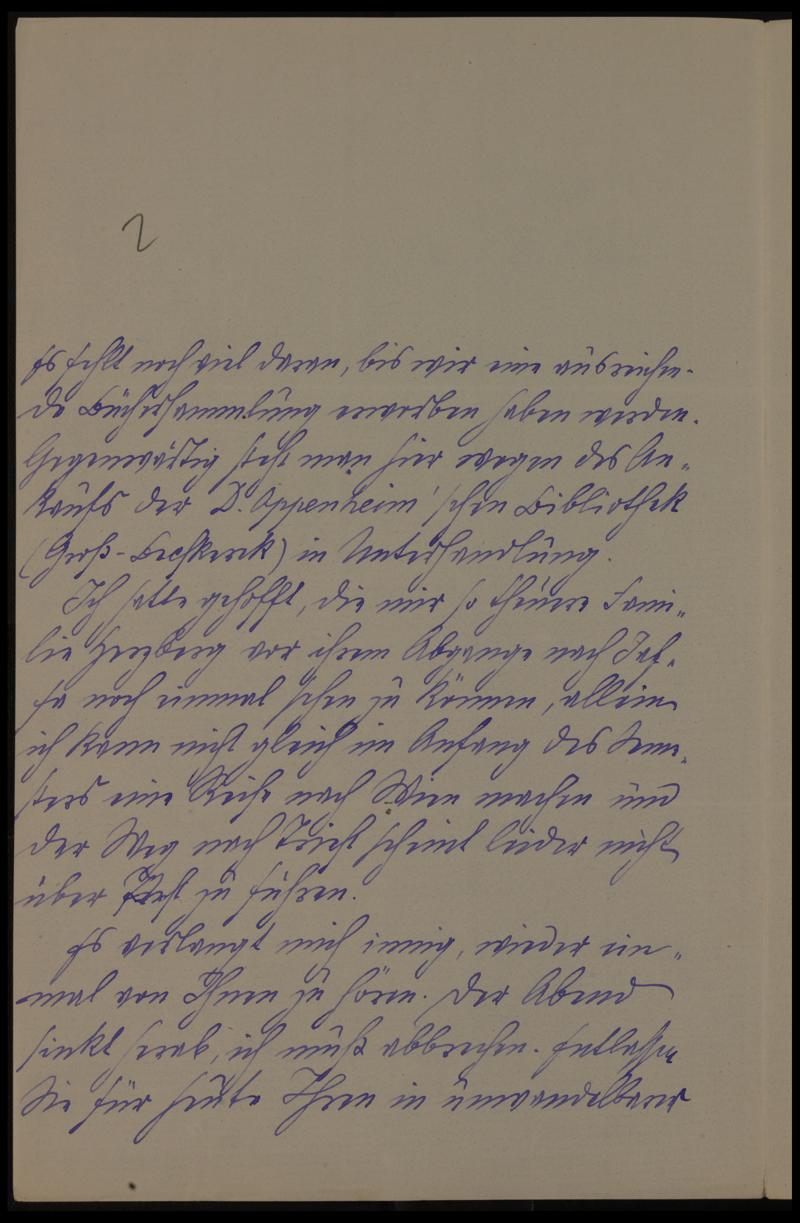 2
Es fehlt noch viel daran, bis wir eine ausreichen-
de Büchersammlung erworben haben werden.
Gegenwärtig steht man hier wegen des An-
kaufs der D. Oppenheim'schen Bibliothek
(Groß-Becskerek) in Unterhandlung.
Ich hatte gehofft, die mir so theuere Fami-
lie Herzberg vor ihrem Abgange nach Jaf-
fa noch einmal sehen zu können, allein
ich kann nicht gleich im Anfang des Seme-
sters eine Reise nach Wien machen und
der Weg nach Triest scheint leider nicht
über Pest zu führen.
Es verlangt mich innig, wieder ein-
mal von Ihnen zu hören. Der Abend
sinkt herab, ich muß abbrechen. Entlassen
Sie für heute Ihren in unwandelbarer